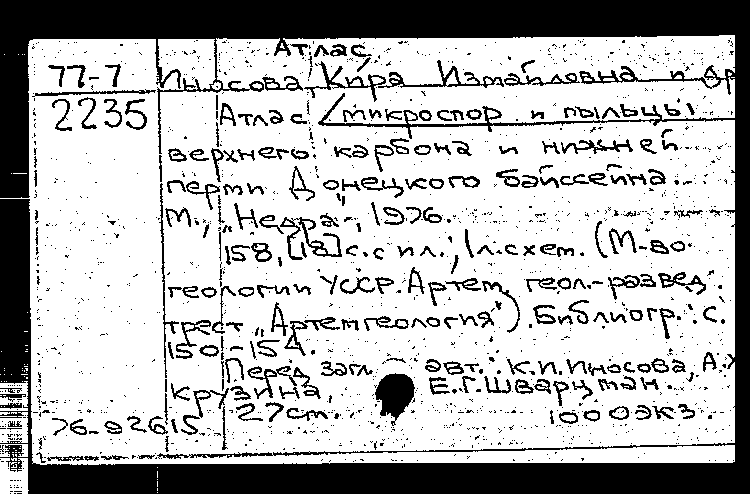 Атлас
77-7 Иносова, Кира Измайловна и др
2235 Атлас микроспор и пыльцы
верхнего карбона и нижней
перми Донецкого бассейна.
М., „Недра“, 1976.
158, [18] с. с ил.; 1 л. схем. (М-во
геологии УССР. Артем. геол.-развед.
трест „Артемгеология“). Библиогр.: с.
150-154.
Перед загл. авт.: К.И.Иносова, А.Х
Крузина, Е.Г.Шварцман.
27см. 1000экз.
76-92615